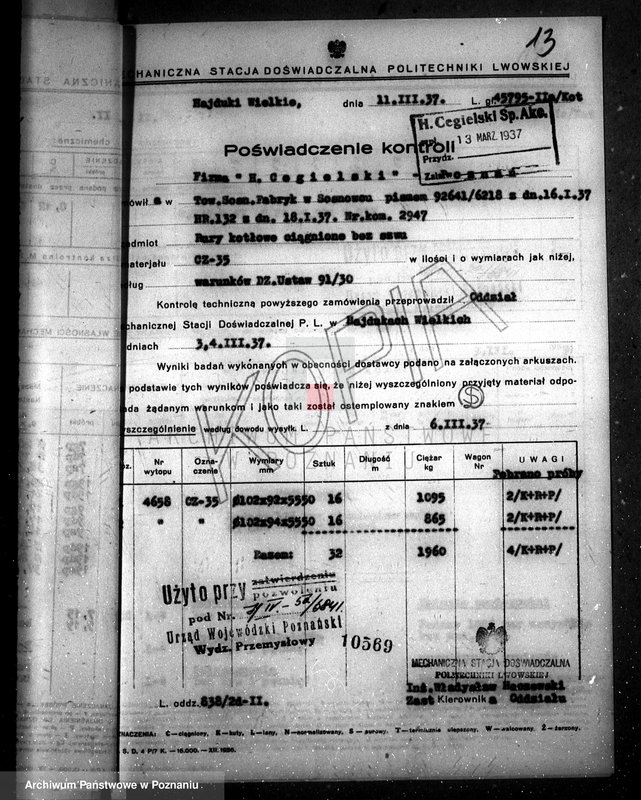 13
CHANICZNA STACJA DOŚWIADCZALNA POLITECHNIKI LWOWSKIEJ
Hajduki Wielkie, dnia 11.III.37. L. gł. 45795-IIa/Kot
H. Cegielski Sp. Akc.
13 MARZ. 1937
Przydz.
Poświadczenie kontroli
Firma "H. Cegielski" - Poznań
mówiła w Tow.Sosn.Fabryk w Sosnowcu pismem 92641/6218 z dn.16.I.37
HR.132 z dn. 18.I.37. Nr.kom. 2947
edmiot Rury kotłowe ciągnione bez szwu
materjału CZ-35 w ilości i o wymiarach jak niżej,
dług warunków DZ.Ustaw 91/30
Kontrolę techniczną powyższego zamówienia przeprowadził Oddział
echanicznej Stacji Doświadczalnej P. L. w Hajdukach Wielkich
dniach 3,4.III.37.
Wyniki badań wykonanych w obecności dostawcy podano na załączonych arkuszach.
podstawie tych wyników poświadcza się, że niżej wyszczególniony przyjęty materiał odpo-
ada żądanym warunkom i jako taki został ostemplowany znakiem S
yszczególnienie według dowodu wysyłk. L. z dnia 6.III.37
KOPIA
oz. Nr wytopu Ozna-czenie Wymiary mm Sztuk Długość m Ciężar kg Wagon Nr UWAGI
Pobrano próby
4658 CZ-35 Ø102x92x5550 16 1095 2/K+R+P/
" " Ø102x94x5550 16 865 2/K+R+P/
Razem: 32 1960 4/K+R+P/
Użyto przy zatwierdzeniu
pozwoleniu
pod Nr.
Urząd Wojewódzki Poznański
Wydz. Przemysłowy
10569
MECHANICZNA STACJA DOŚWIADCZALNA
POLITECHNIKI LWOWSKIEJ
Inż. Władysław
L. oddz. 838/2d-II. Zast Kierownika Oddziału
ZNACZENIA: C—ciągniony, K—kuty, L—lany, N—normalizowany, S—surowy, T—termicznie ulepszony, W—walcowany, Ż—żarzony.
S. D. 4 P/7 K. — 15.000. — XII. 1936.
Archiwum Państwowe w Poznaniu